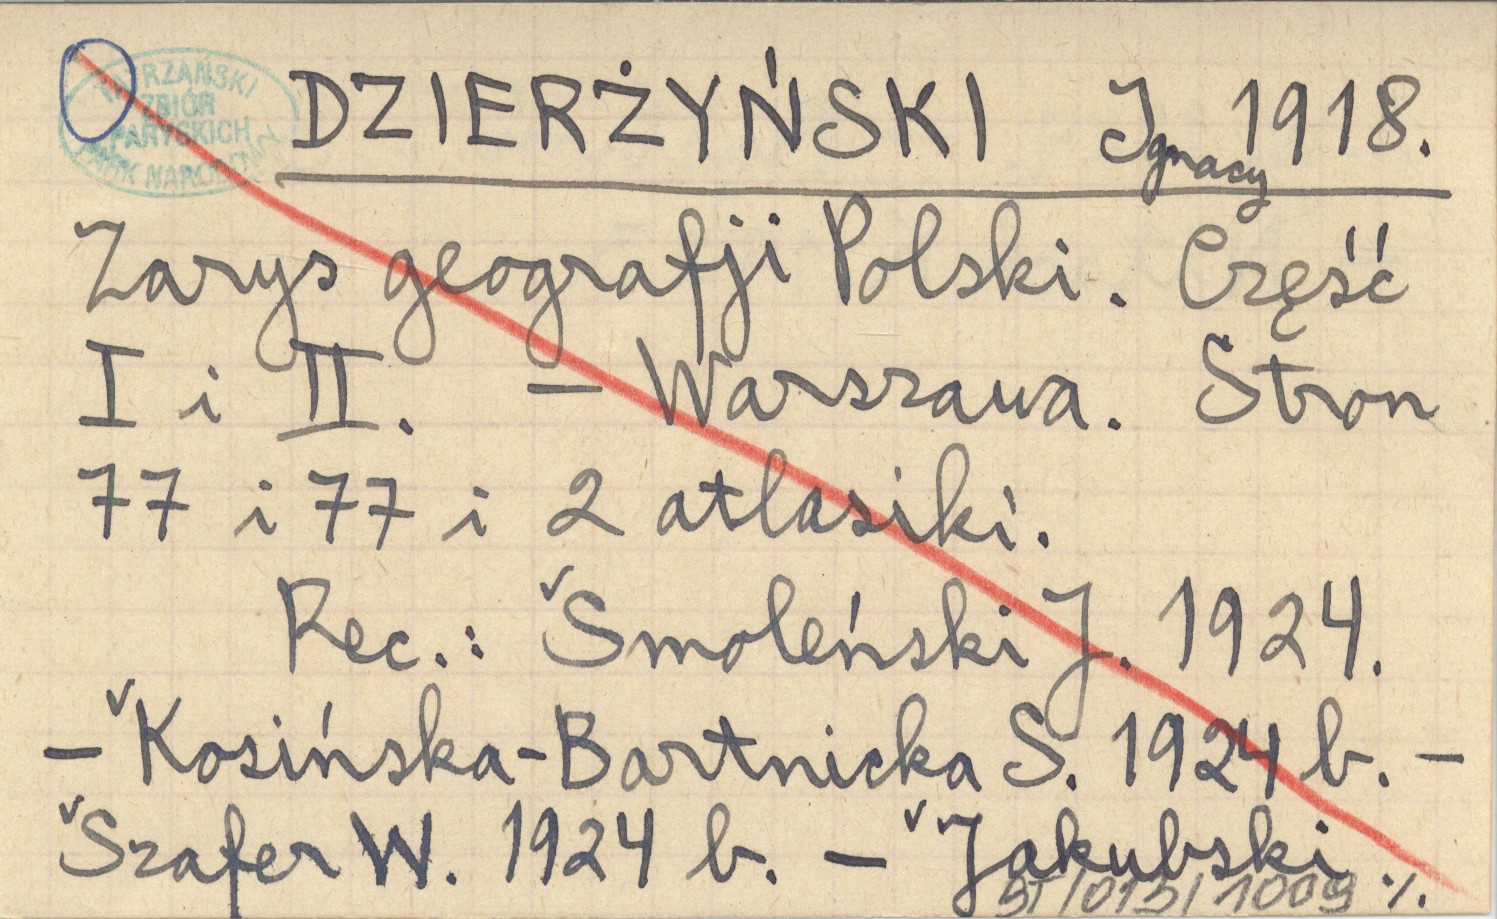 TATRZAŃSKI
ZBIÓR
PARYSKICH
PARK NARODOWY
DZIERŻYŃSKI Ignacy 1918.
Zarys geografji Polski. Część
I i II. – Warszawa. Stron
77 i 77 i 2 atlasiki.
Rec.: Smoleński J. 1924.
– Kosińska-Bartnicka S. 1924 b. –
Szafer W. 1924 b. – Jakubski
ST/013/1009 ./.